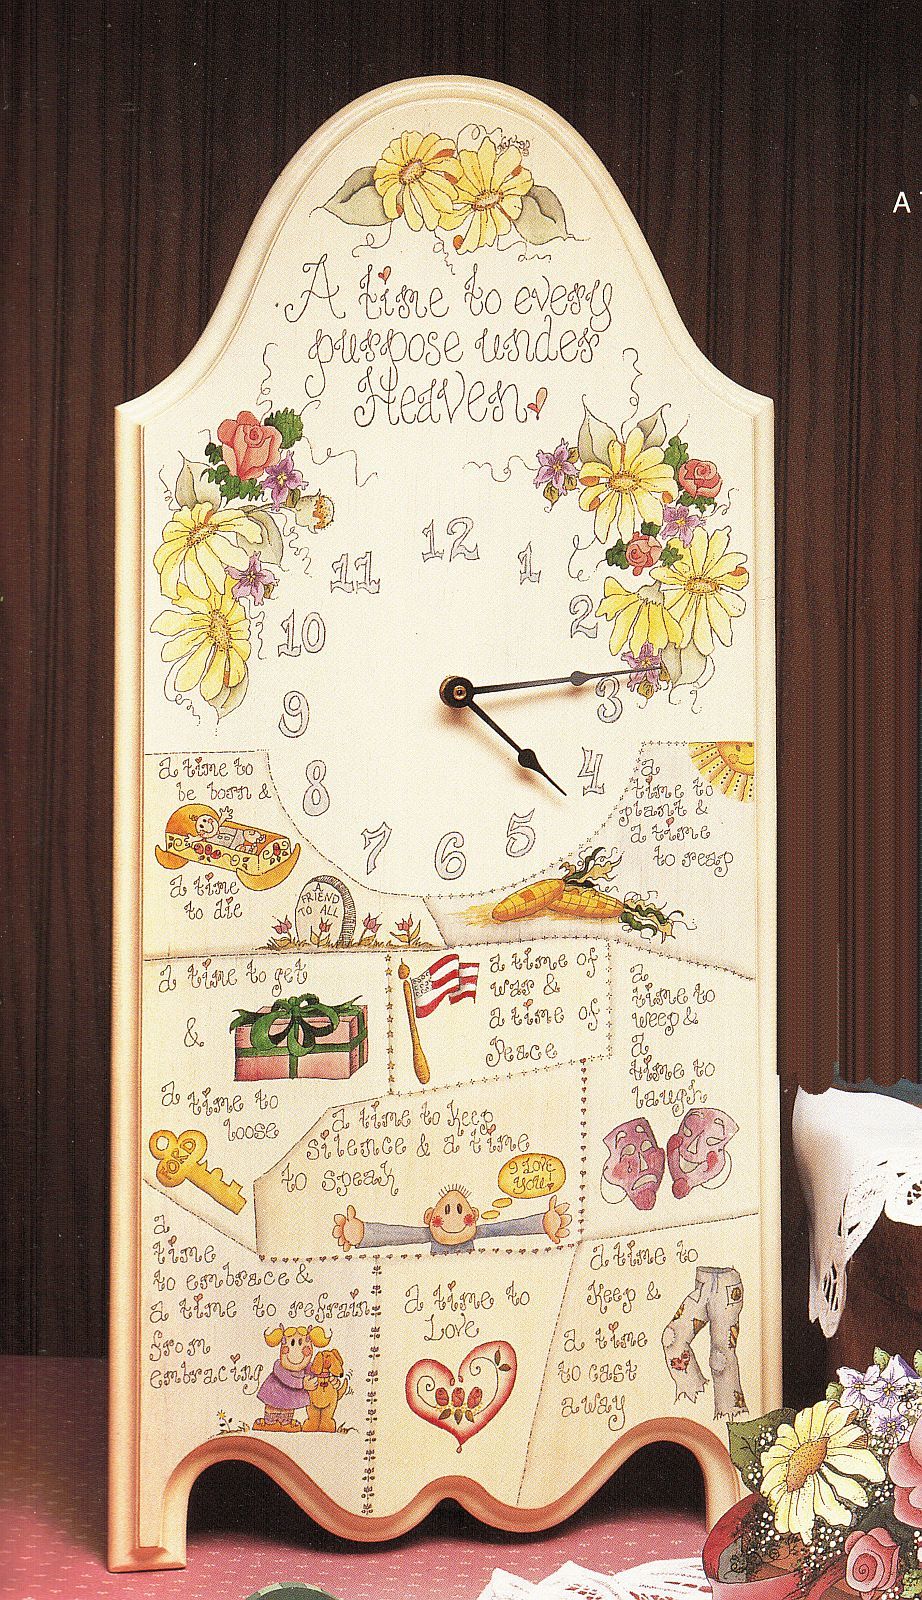 A
A time to every
purpose under
Heaven
12
11
1
10
2
9
3
8
4
7
6
5
a time to
be born &
a time
to die
A
FRIEND
TO ALL
a
time to
plant &
a time
to reap
a time to get
&
a time to
loose
FORD
a time of
war &
a time of
Peace
a
time to
weep &
a
time to
laugh
a time to keep
silence & a time
to speak
I Love
You!
a
time
to embrace &
a time to refrain
from
embracing
a time to
Love
a time to
Keep &
a time
to cast
away